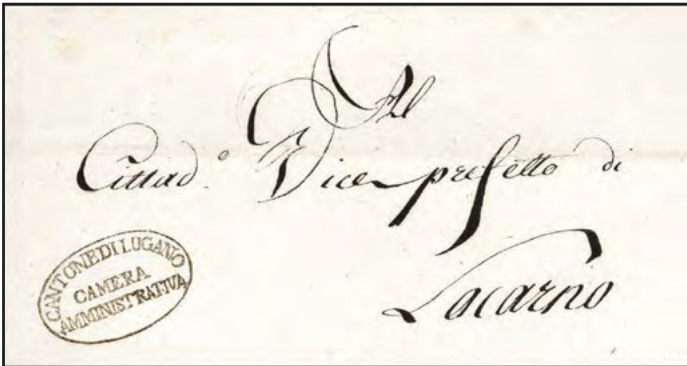 Al
Cittad.o Vice prefetto di
Locarno
CANTONE DI LUGANO
CAMERA
AMMINISTRATIVA